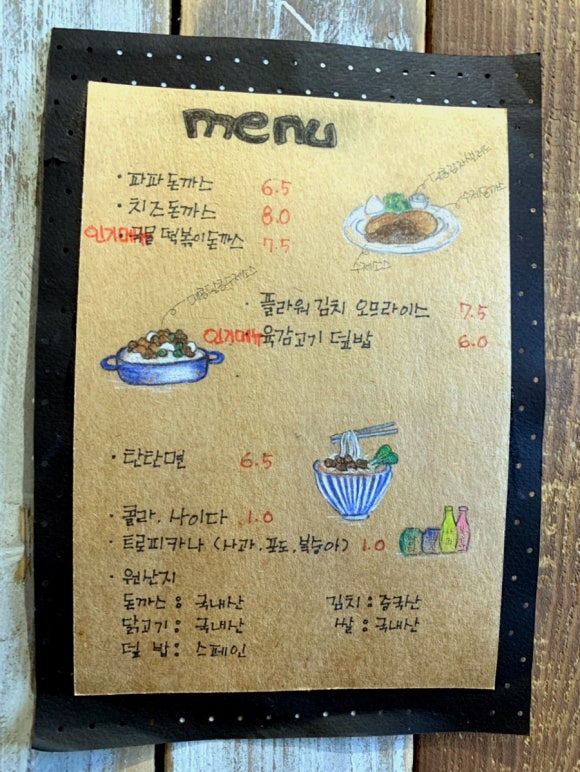 menu
· 파파돈까스 6.5
· 치즈돈까스 8.0
인기메뉴 국물 떡볶이돈까스 7.5
수제소스
· 플라워 김치 오므라이스 7.5
인기메뉴 육감고기 덮밥 6.0
· 탄탄면 6.5
· 콜라, 사이다 1.0
· 트로피카나 (사과, 포도, 복숭아) 1.0
· 원산지
돈까스 : 국내산 김치 : 중국산
닭고기 : 국내산 쌀 : 국내산
덮밥 : 스페인